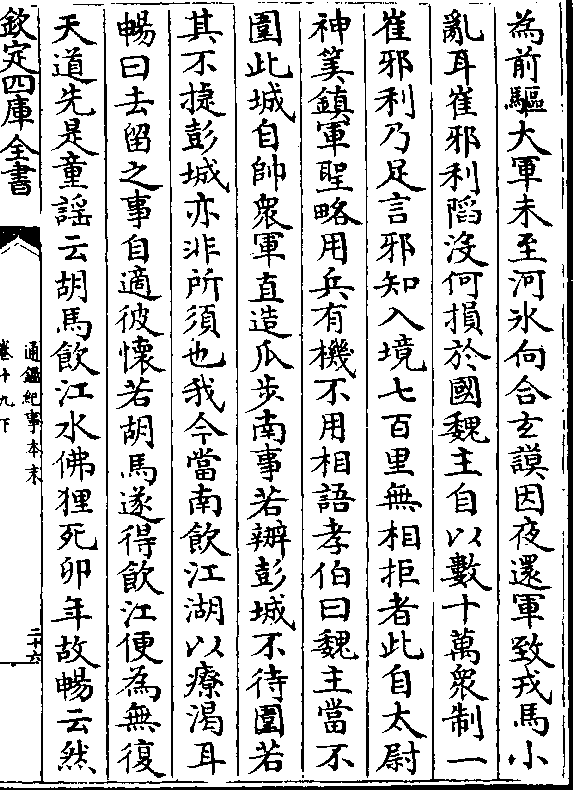 為前驅大軍未至河冰向合玄謨因夜還軍致戎馬小
亂耳崔邪利陷沒何損於國魏主自以數十萬衆制一
崔邪利乃足言邪知入境七百里無相拒者此自太尉
神筭鎮軍聖略用兵有機不用相語孝伯曰魏主當不
圍此城自帥衆軍直造瓜步南事若辦彭城不待圍若
其不捷彭城亦非所須也我今當南飲江湖以療渴耳
暢曰去留之事自適彼懷若胡馬遂得飲江便為無復
天道先是童謡云胡馬飲江水佛狸死卯年故暢云然
欽定四庫全書
通鑑紀事本末
卷十九下
二十六